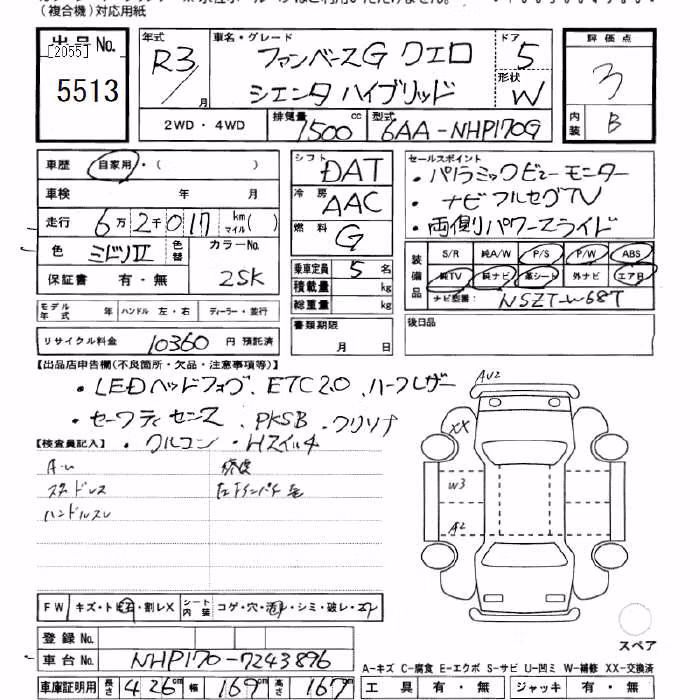 (複合機)対応用紙
出品No. [2055] 5513
年式 R3 / 月
車名・グレード ファンベースG クエロ シエンタ ハイブリッド
ドア 5
形状 W
評価点 3
内装 B
2WD・4WD
排気量 1500 cc
型式 6AA-NHP170G
車歴 自家用・( )
車検 年 月
走行 6万2千017 km マイル( )
色 ミドリII 色替
カラーNo. 2SK
保証書 有・無
シフト DAT
冷房 AAC
燃料 G
乗車定員 5名
積載量 kg
総重量 kg
セールスポイント
・パノラミックビューモニター
・ナビフルセグTV
・両側パワースライド
装備品 S/R 純A/W P/S P/W ABS
純TV 純ナビ 革シート 外ナビ エアB
ナビ型番: NSZT-W68T
モデル年式 年 ハンドル 左・右 ディーラー・並行
書類期限 月 日
後日品
リサイクル料金 10360 円 預託済
【出品店申告欄(不良箇所・欠品・注意事項等)】
・LEDヘッドフォグ、ETC2.0、ハーフレザー
・セーフティセンス、PKSB、クリソナ
【検査員記入】・クルコン・Hスイルチ
スタドレス
ハンドルスレ
AU2
XX
W3
A2
FW キズ・トビ石・割レX シート内装 コゲ・穴・汚レ・シミ・破レ・スレ
登録No.
車台No. NHP170-7243896
スペア
A-キズ C-腐食 E-エクボ S-サビ U-凹ミ W-補修 XX-交換済
車庫証明用 長さ 426cm 幅 169cm 高さ 167cm
工具 有・無 ジャッキ 有・無